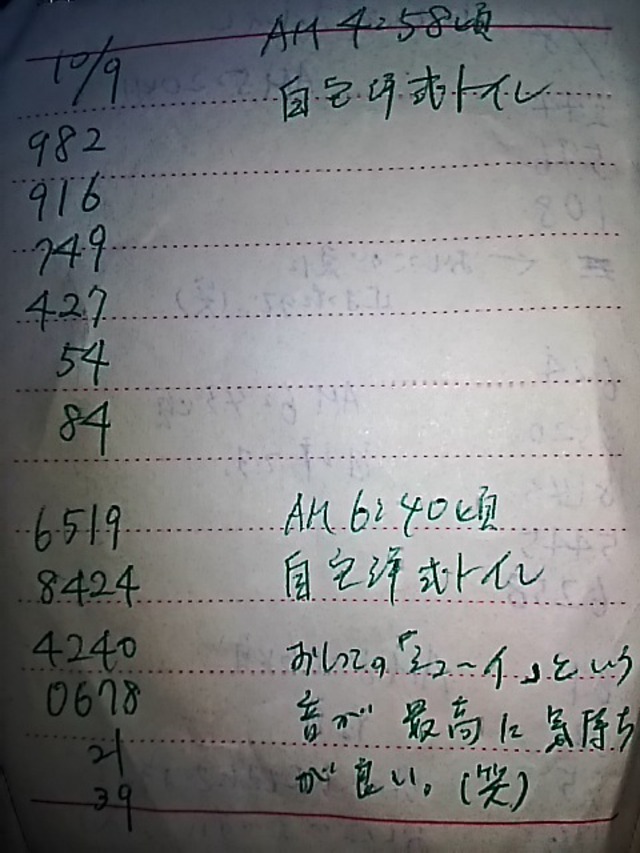 10/9 AM 4:58頃
自宅洋式トイレ
982
916
749
427
54
84
6519 AM 6:40頃
8424 自宅洋式トイレ
4240 おしっこの「シューイ」という
0678 音が最高に気持ち
21
39 が良い。(笑)